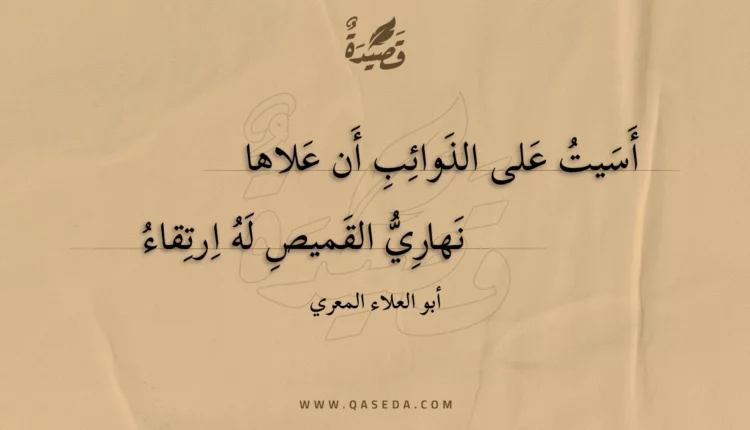 قَصِيْدَةٌ
أَسَيتُ عَلى الذَوائِبِ أَن عَلاها
نَهارِيُّ القَميصِ لَهُ اِرتِقاءُ
أبو العلاء المعري
WWW.QASEDA.COM